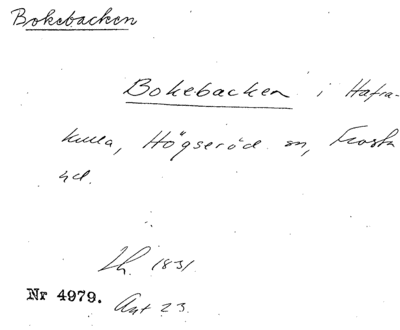 Bokebacken
Bokebacken i Hafra-
kulla, Högseröd sn, Frosta
hd.
Lh. 1831
Nr 4979.
Ant 23.